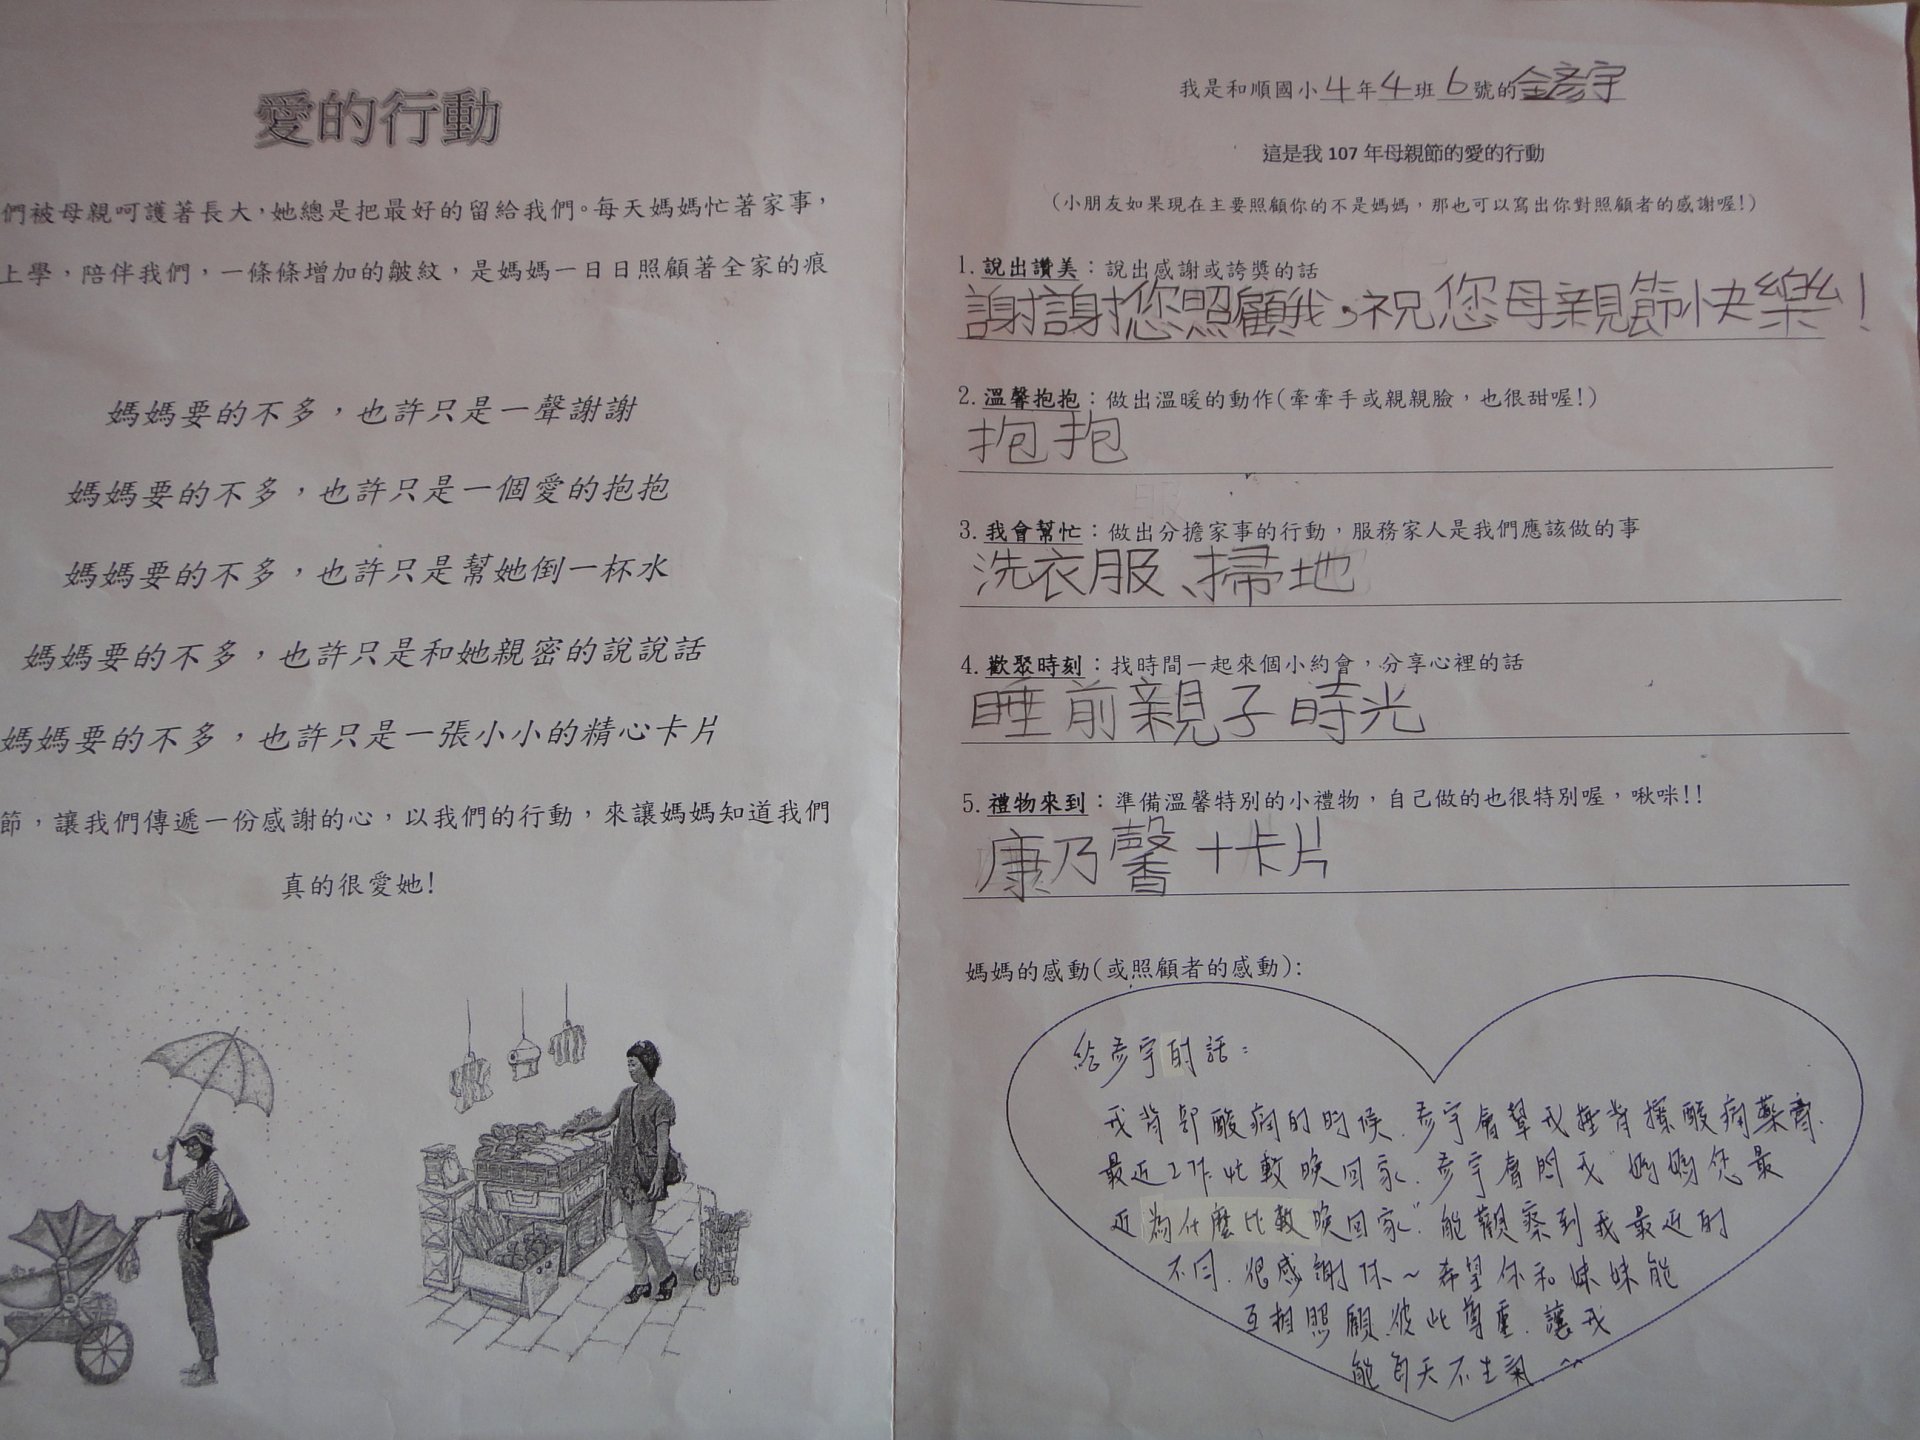 愛的行動
們被母親呵護著長大，她總是把最好的留給我們。每天媽媽忙著家事，
上學，陪伴我們，一條條增加的皺紋，是媽媽一日日照顧著全家的痕
媽媽要的不多，也許只是一聲謝謝
媽媽要的不多，也許只是一個愛的抱抱
媽媽要的不多，也許只是幫她倒一杯水
媽媽要的不多，也許只是和她親密的說說話
媽媽要的不多，也許只是一張小小的精心卡片
節，讓我們傳遞一份感謝的心，以我們的行動，來讓媽媽知道我們
真的很愛她!
我是和順國小4年4班6號的金彥宇
這是我107年母親節的愛的行動
(小朋友如果現在主要照顧你的不是媽媽，那也可以寫出你對照顧者的感謝喔!)
1.說出讚美：說出感謝或誇獎的話
謝謝您照顧我，祝您母親節快樂！
2.溫馨抱抱：做出溫暖的動作(牽牽手或親親臉，也很甜喔!)
抱抱
3.我會幫忙：做出分擔家事的行動，服務家人是我們應該做的事
洗衣服、掃地
4.歡聚時刻：找時間一起來個小約會，分享心裡的話
睡前親子時光
5.禮物來到：準備溫馨特別的小禮物，自己做的也很特別喔，啾咪!!
康乃馨+卡片
媽媽的感動(或照顧者的感動):
給彥宇的話：
我背部酸痛的時候.彥宇會幫我捶背擦酸痛藥膏.
最近工作比較晚回家.彥宇會問我"媽媽您最
近為什麼比較晚回家".能觀察到我最近的
不同.很感謝你~希望你和妹妹能
互相照顧.彼此尊重.讓我
能每天不生氣.^^